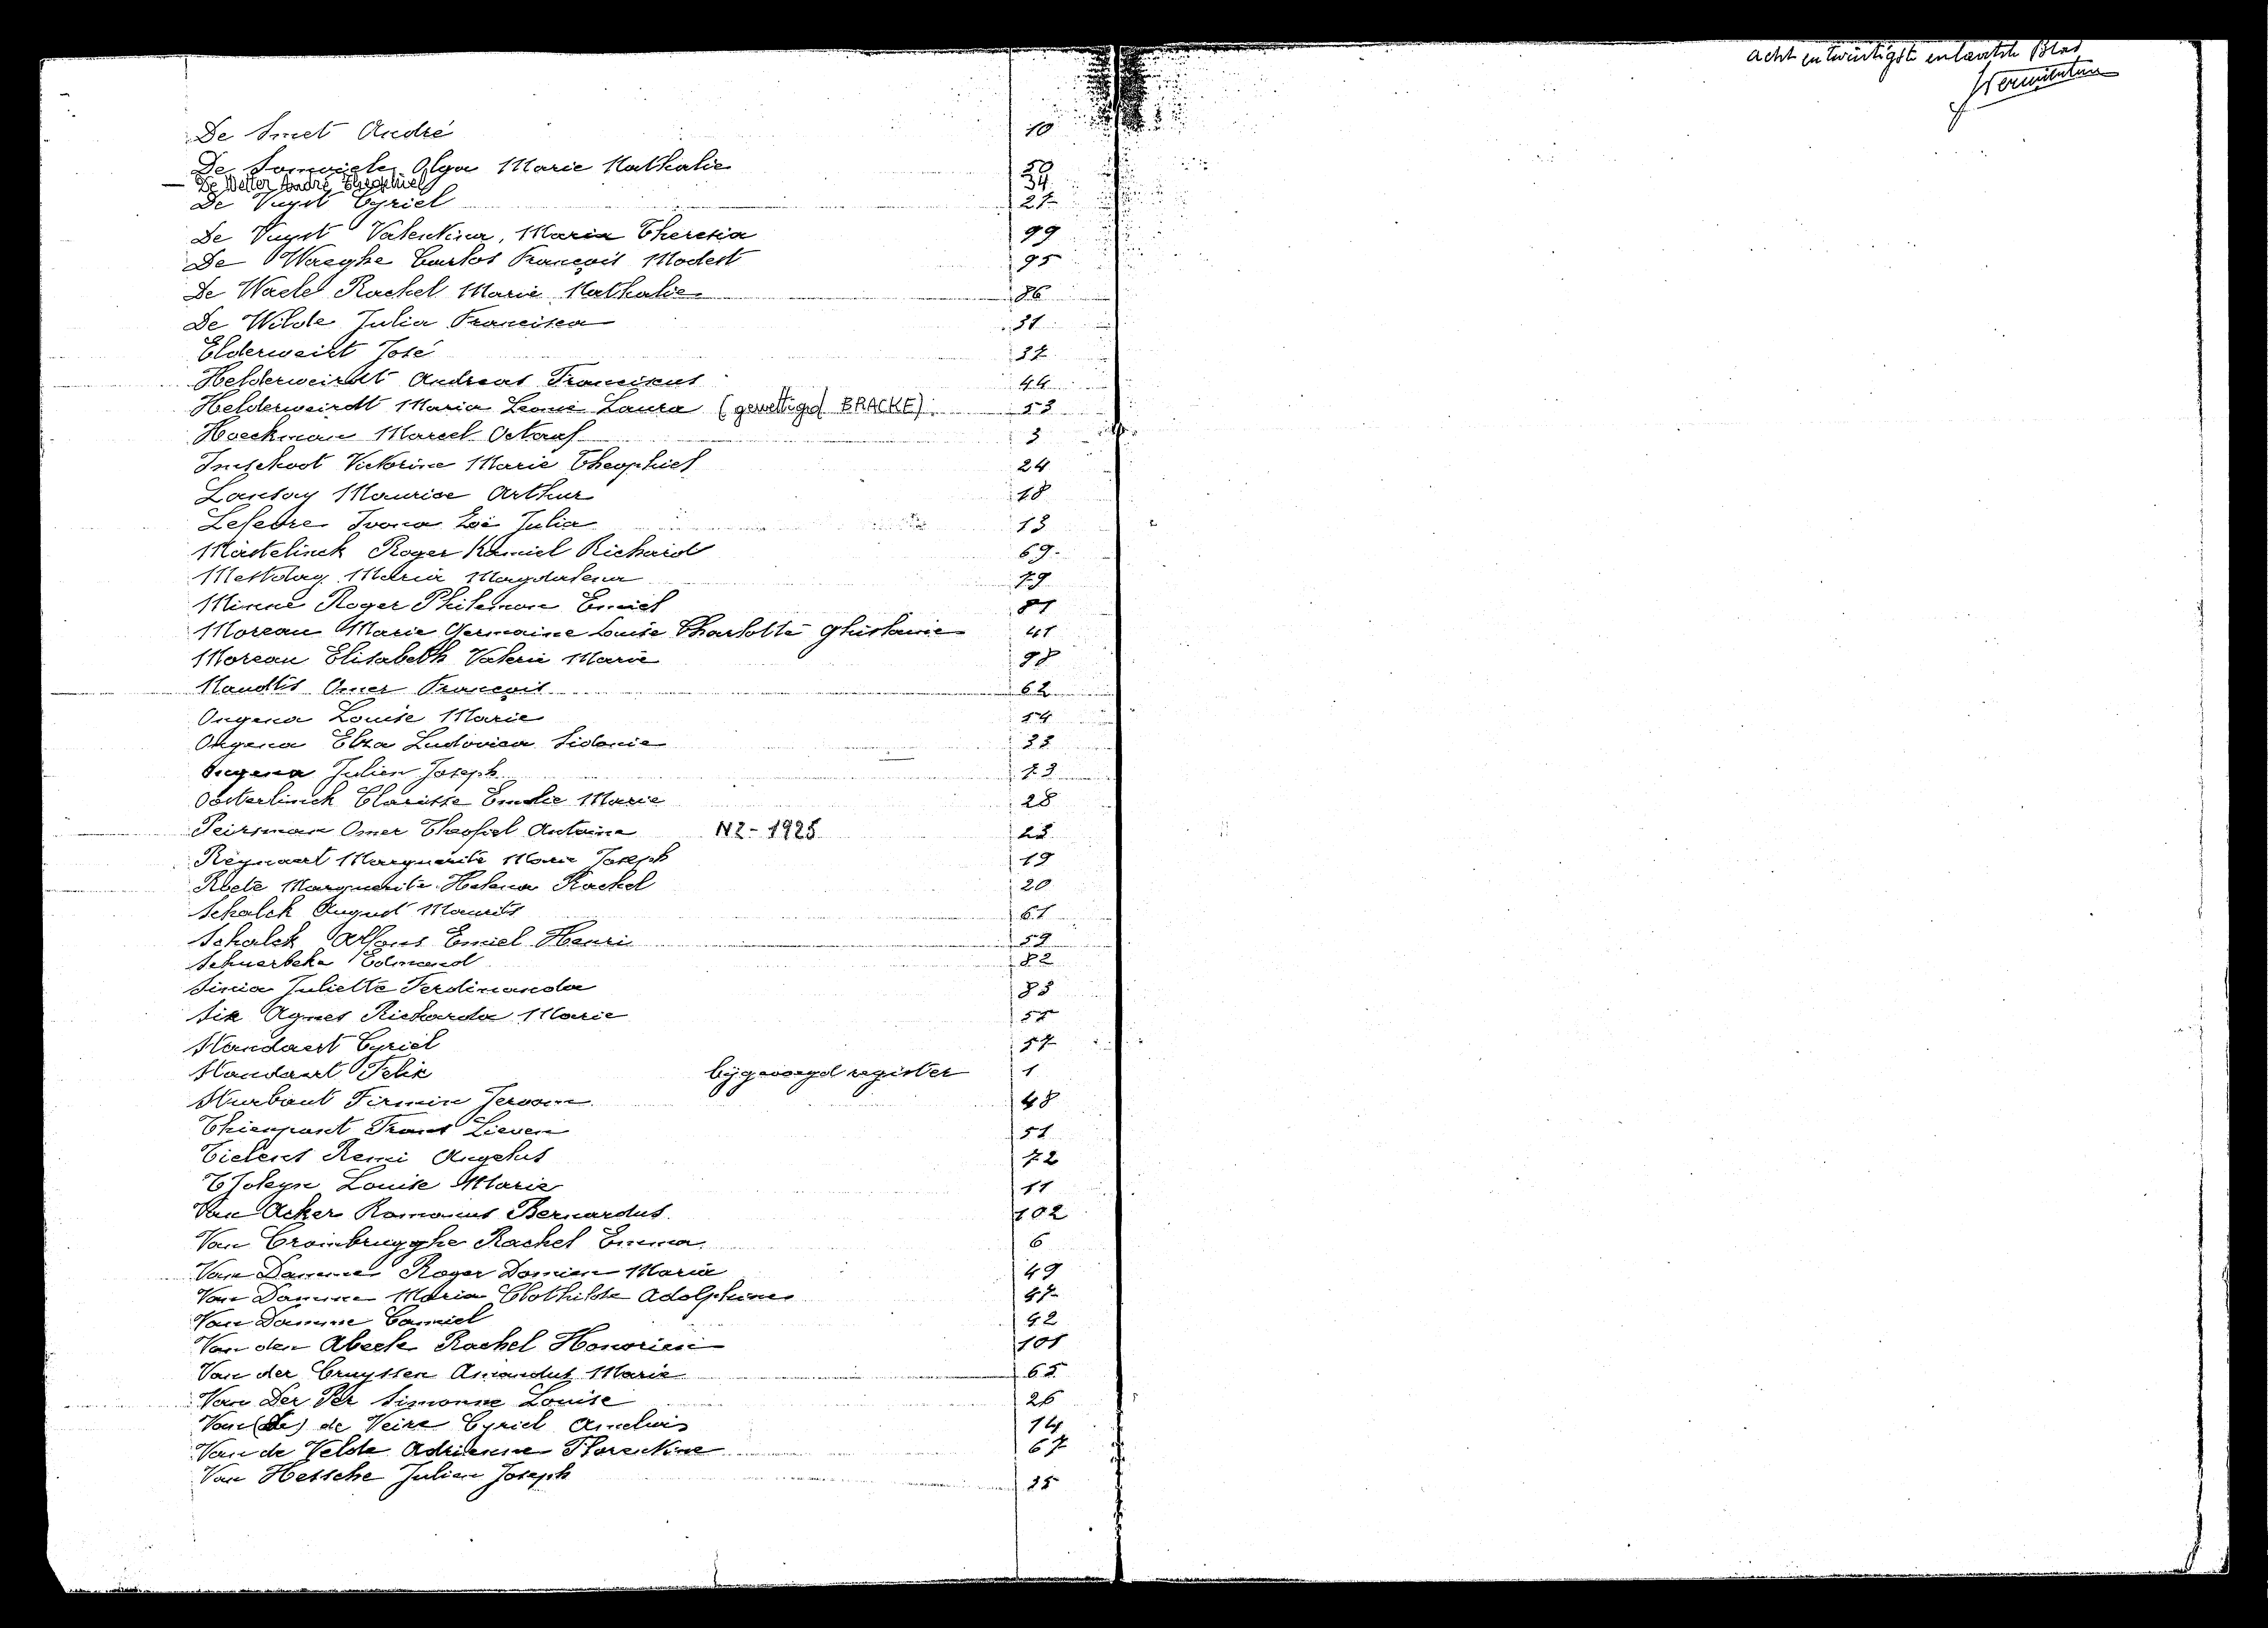 De Smet André 10
De Somviele Olga Marie Nathalie 50
— De Wetter André Theophiel 34
De Vuyst Cyriel 27
De Vuyst Valentina, Maria Theresia 99
De Waeghe Carlos François Modest 95
De Waele Rachel Marie Nathalie 86
De Wilde Julia Francisca 31
Elderweirt José 37
Helderweirdt Andreas Franciscus 44
Helderweirdt Maria Leonie Laura (gewettigd BRACKE) 53
Hoeckman Marcel Octaaf 3
Inschoot Victorine Marie Theophiel 24
Lansoy Maurice Arthur 18
Lefevre Ivona Zoë Julia 13
Mastelinck Roger Kamiel Richard 69
Mestdag Maria Magdalena 79
Minne Roger Philemon Emiel 81
Moreau Marie Germaine Louise Charlotte Ghislaine 41
Moreau Elisabeth Valerie Marie 98
Naudts Omer François 62
Ongena Louise Marie 54
Ongena Elza Ludovica Sidonie 33
Ongena Julien Joseph 73
Oosterlinck Clarisse Emelie Marie 28
Peirsman Omer Theofiel Antoine N2 - 1925 23
Reynaert Marguerite Marie Joseph 19
Roete Marguerite Helena Rachel 20
Schalck August Maurits 61
Schalck Alfons Emiel Henri 59
Schuerbeke Edmond 82
Sinia Juliette Ferdinanda 83
Six Agnes Richarda Marie 55
Standaert Cyriel 57
Standaert Felix bijgevoegd register 1
Sturbaut Firmin Jeroom 48
Thienpont Frans Lieven 51
Tielens Remi Angelus 72
T'Joleyn Louise Marie 11
Van Acker Romanus Bernardus 102
Van Crombrugghe Rachel Emma 6
Van Damme Roger Damien Maria 49
Van Damme Maria Clothilde Adolphine 47
Van Damme Camiel 42
Van den Abeele Rachel Honorien 101
Van der Cruyssen Amandus Marie 65
Van Der Per Simonne Louise 26
Van (de) de Veire Cyriel 14
Van de Velde Adrienne Florentine 67
Van Hessche Julien Joseph 35
acht en twintigste en laatste Blad